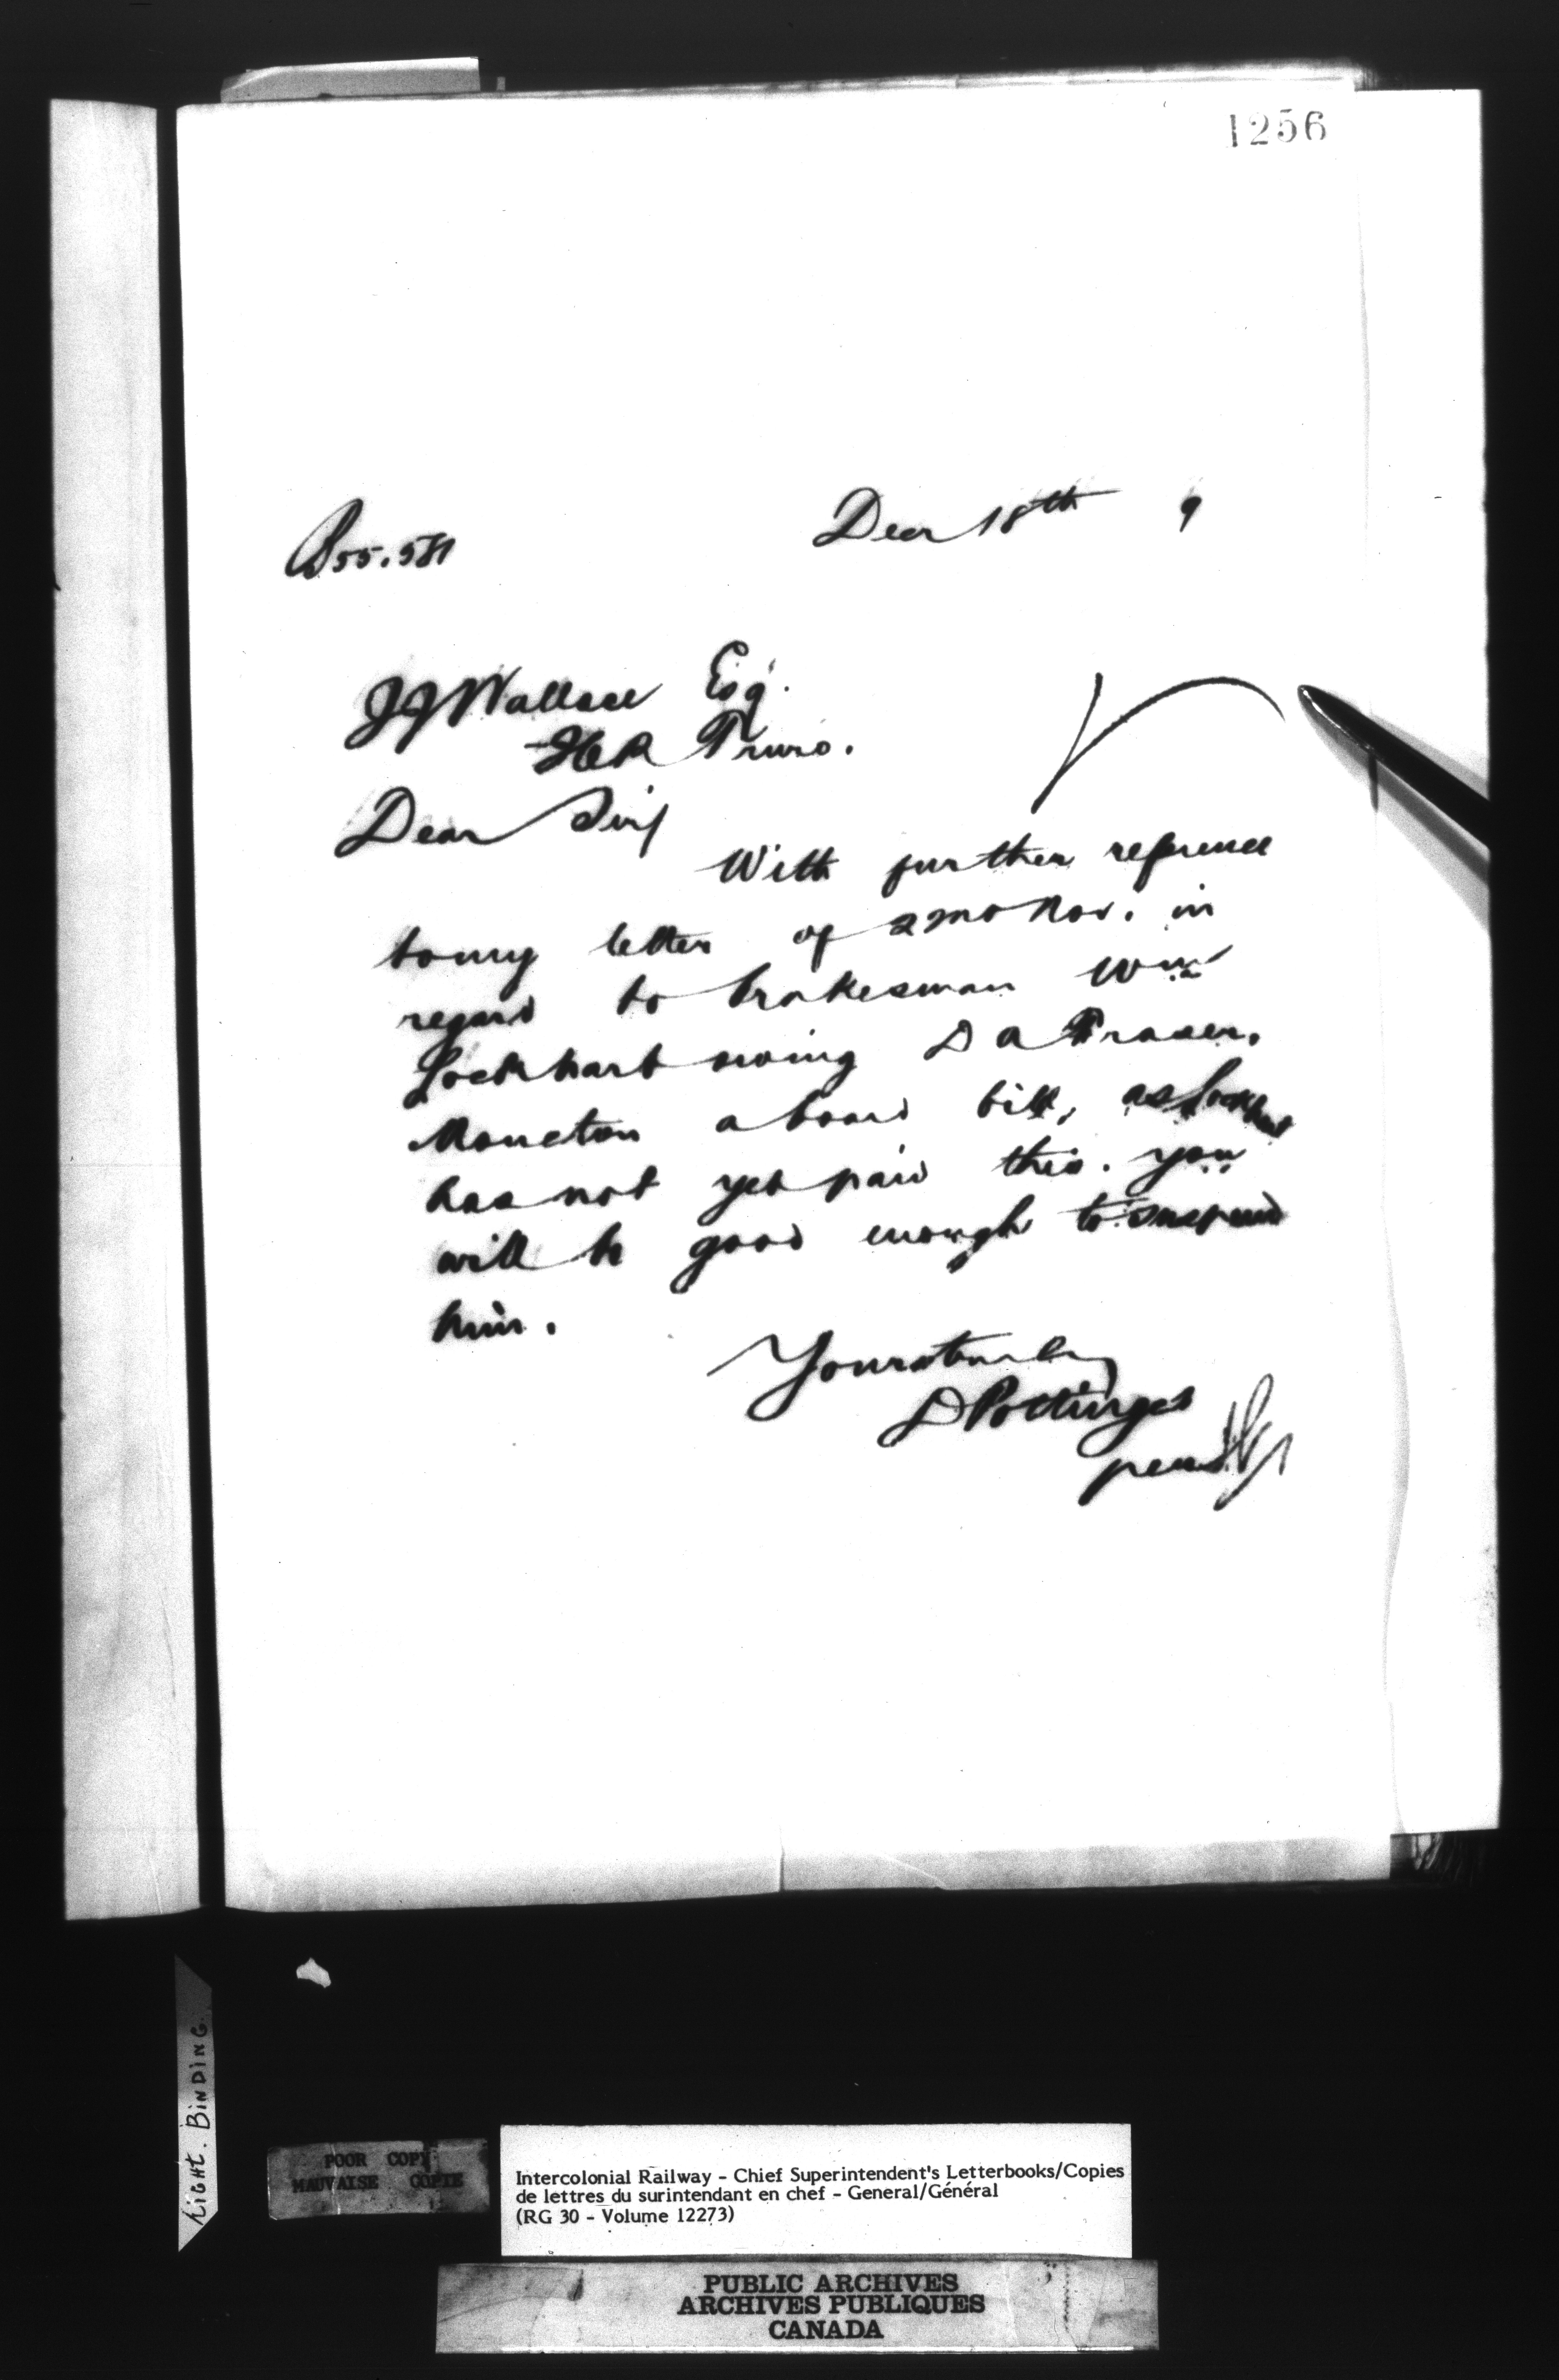 1256
Decr 18th 9
B55.581
JJ Wallace Esq.
ICR Truro.
Dear Sir/
With further reference
to my letter of 22nd Nov. in
regard to brakesman Wm
Lockhart owing D A Fraser,
Moncton a board bill, as Lockhart
has not yet paid this. you
will be good enough to suspend
him.
Yours truly
D Pottinger
per
LIGHT. BINDING.
POOR COPY
MAUVAISE COPIE
Intercolonial Railway - Chief Superintendent's Letterbooks/Copies
de lettres du surintendant en chef - General/Général
(RG 30 - Volume 12273)
PUBLIC ARCHIVES
ARCHIVES PUBLIQUES
CANADA